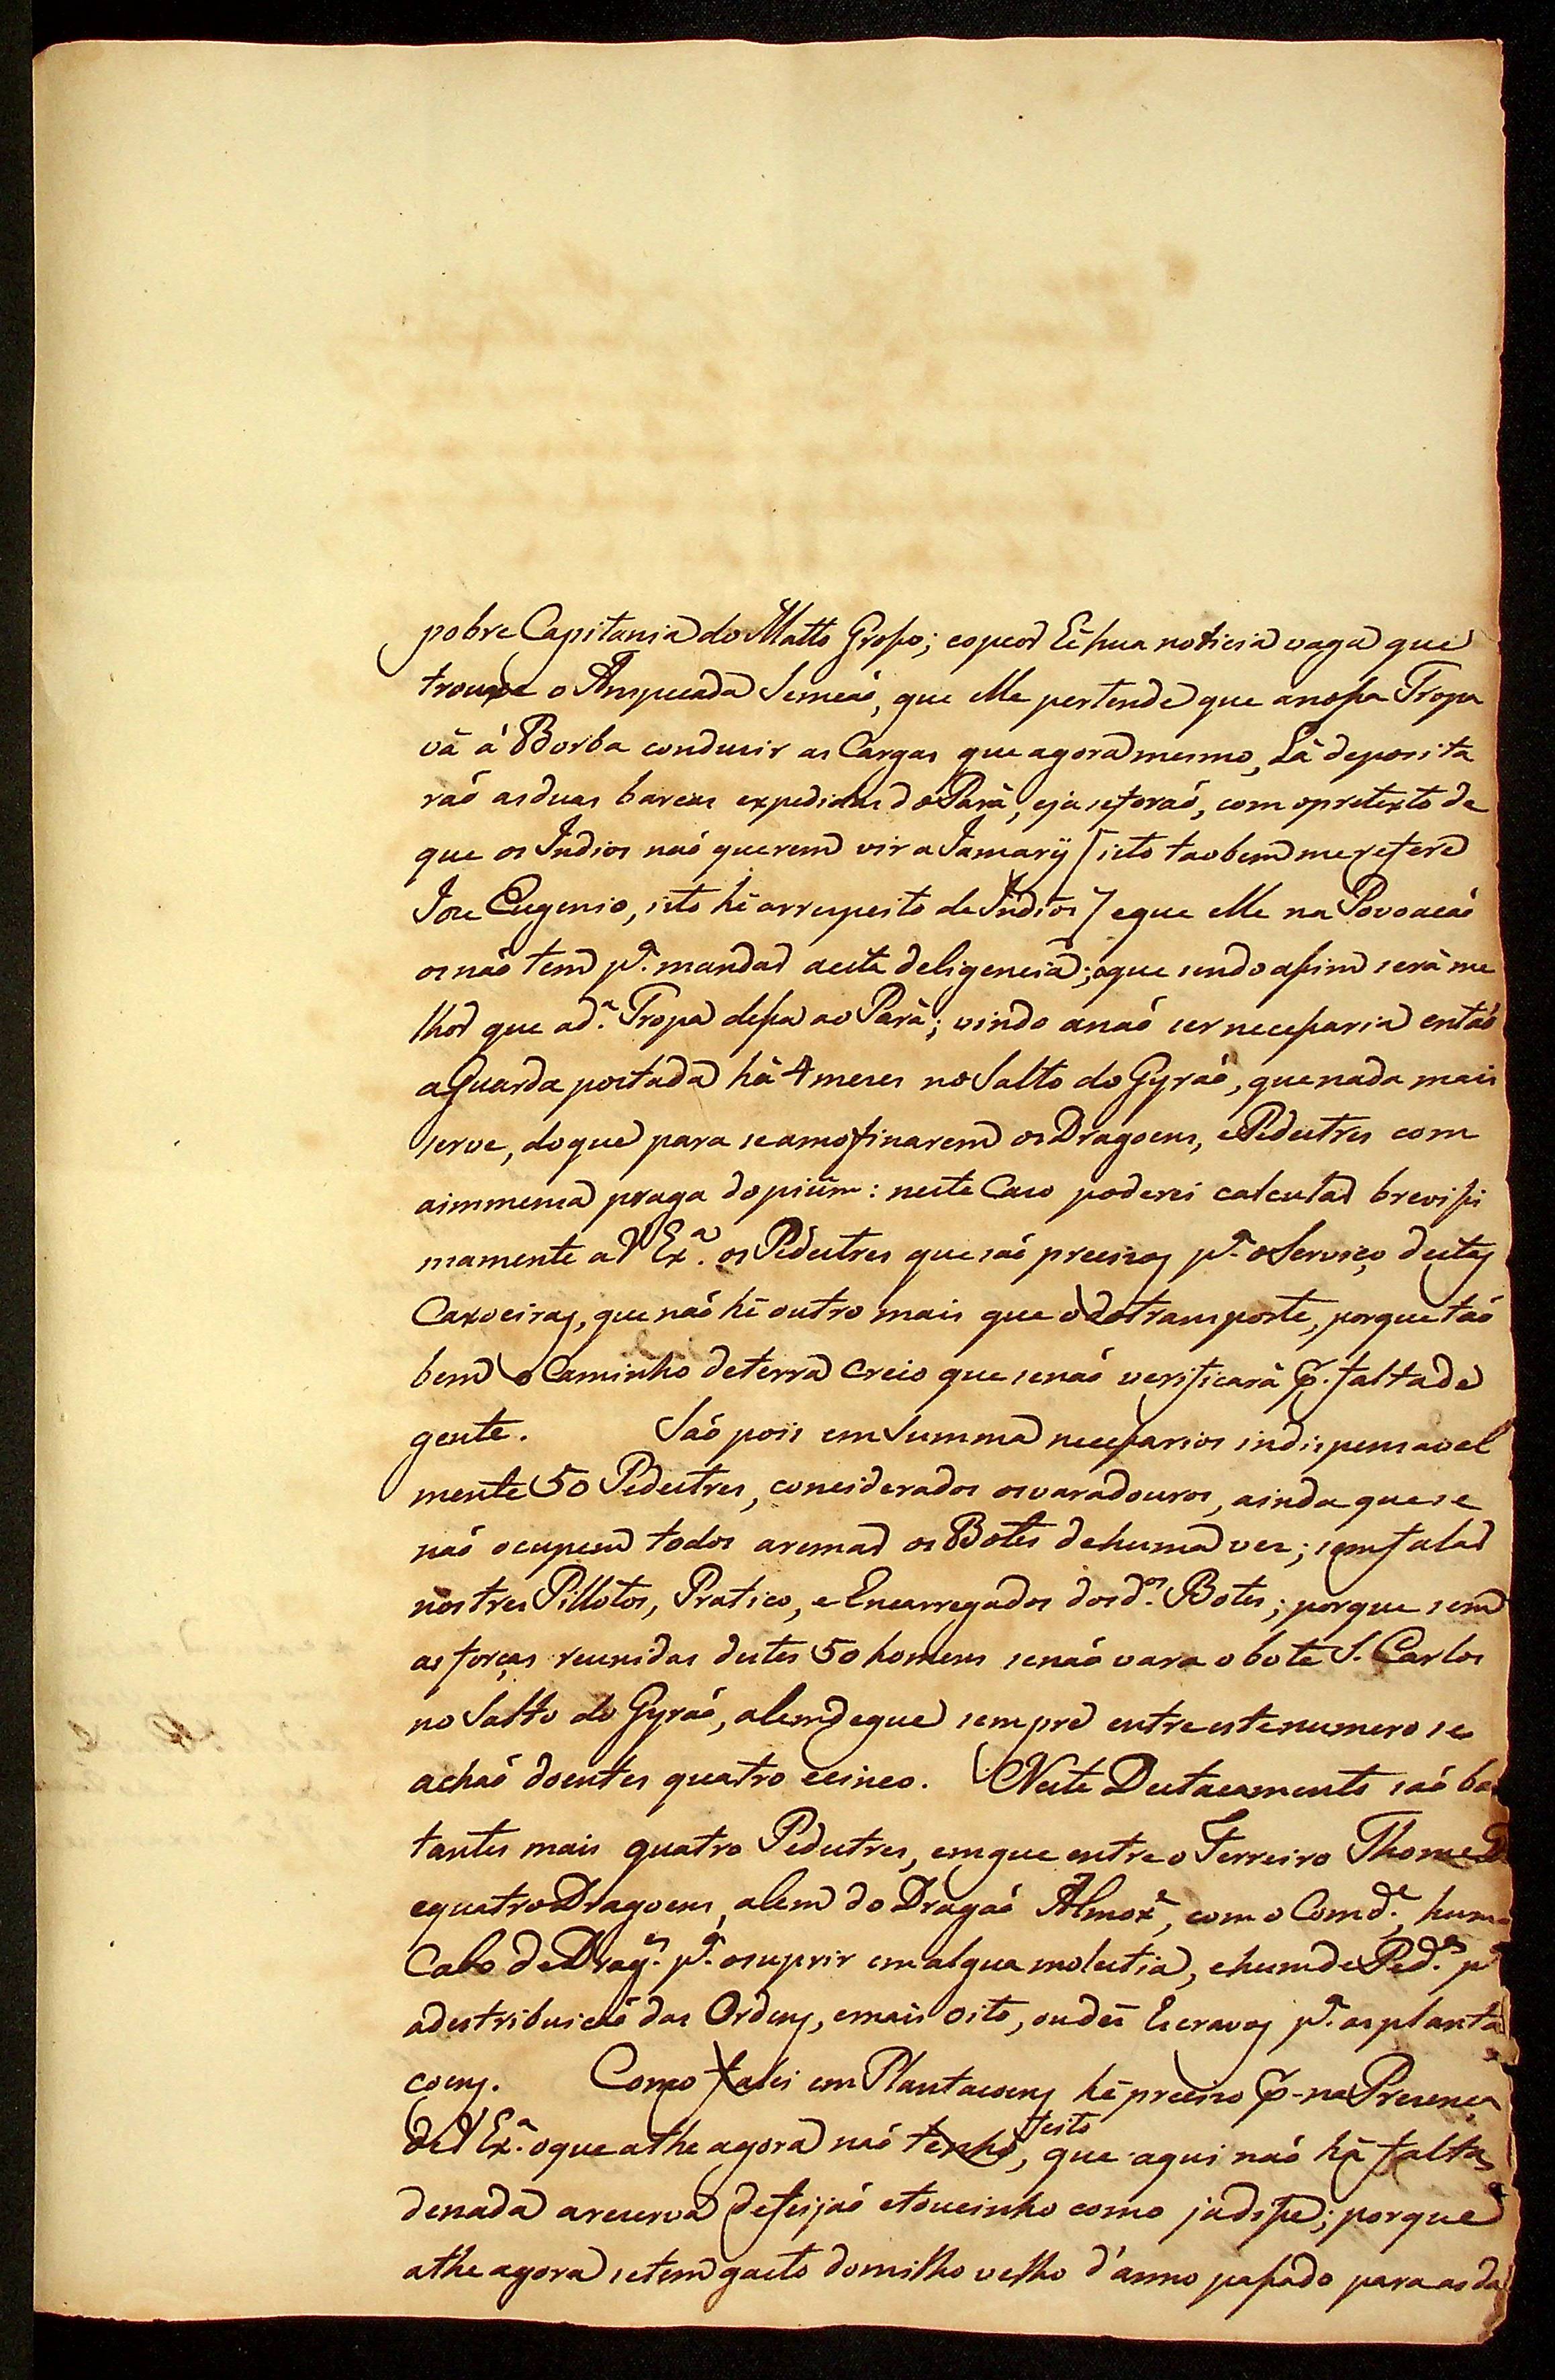 pobre Capitania do Matto Grosso; eopeor hé hua noticia vaga que
trouxe o Anspecada Semeaõ, que elle pertende que anossa Tropa
vá á Borba conduzir as Cargas que agora mesmo, Lá deposita
raõ asduas barcas expedidas do Pará, eja seforaõ, com opretexto de
que os Indios naõ querem vir a Jamarÿ [isto taobem me refere
Joze Eugenio, isto hé arrespeito de Indios] eque elle na Povoacaõ
os naõ tem pª. mandar aesta deligencia; oque sendo assim será me
lhor que adª. Tropa dessa ao Pará; vindo anaõ ser necessaria entaõ
aGuarda postada há 4 mezes no Salto do Gyraõ, quenada mais
serve, doque para seamofinarem os Dragoens, ePedestres com
aimmensa praga dopiúm: neste Cazo poderei calcular brevissi
mamente aV Exª. os Pedestres que saõ precizos pª. oServiço destas
Caxoeiras, que naõ hé outro mais que o dotransporte, porque taõ
bem o Caminho deterra creio que senaõ verificará p. faltade
gente. Saõ pois em Summa necessarios indispensavel
mente 50 Pedestres, considerados osvaradouros, ainda quese
naõ ocupem todos aremar os Botes dehuma vez; semfalar
nos tres Pillotos, Pratico, e Encarregados dosdos. Botes; porque sem
as forças reunidas destes 50 homens senaõ vara o bote S. Carlos
no Salto do Gyraõ, alemdeque sempre entre estenumero se
achaõ doentes quatro ecinco. Neste Destacamento saõ bas
tantes mais quatro Pedestres, emque entre o Ferreiro Thome D
equatro Dragoens, alem do Dragaõ Almoxe, como Comde., hum
Cabo de Drages. pª. osuprir em algua molestia, ehumdePedes. pª
adestribuicaõ das Ordens, emais oito, oudés Escravos pª. asplanta
coens. Como falei em Plantacoens hé precizo p-na Presença
deV Exª. oque athe agora naõ tenho feito, que aqui naõ há falta
denada areserva defeijaõ etoucinho como jadisse; porque
athe agora setem gasto domilho velho d'anno passado para asda